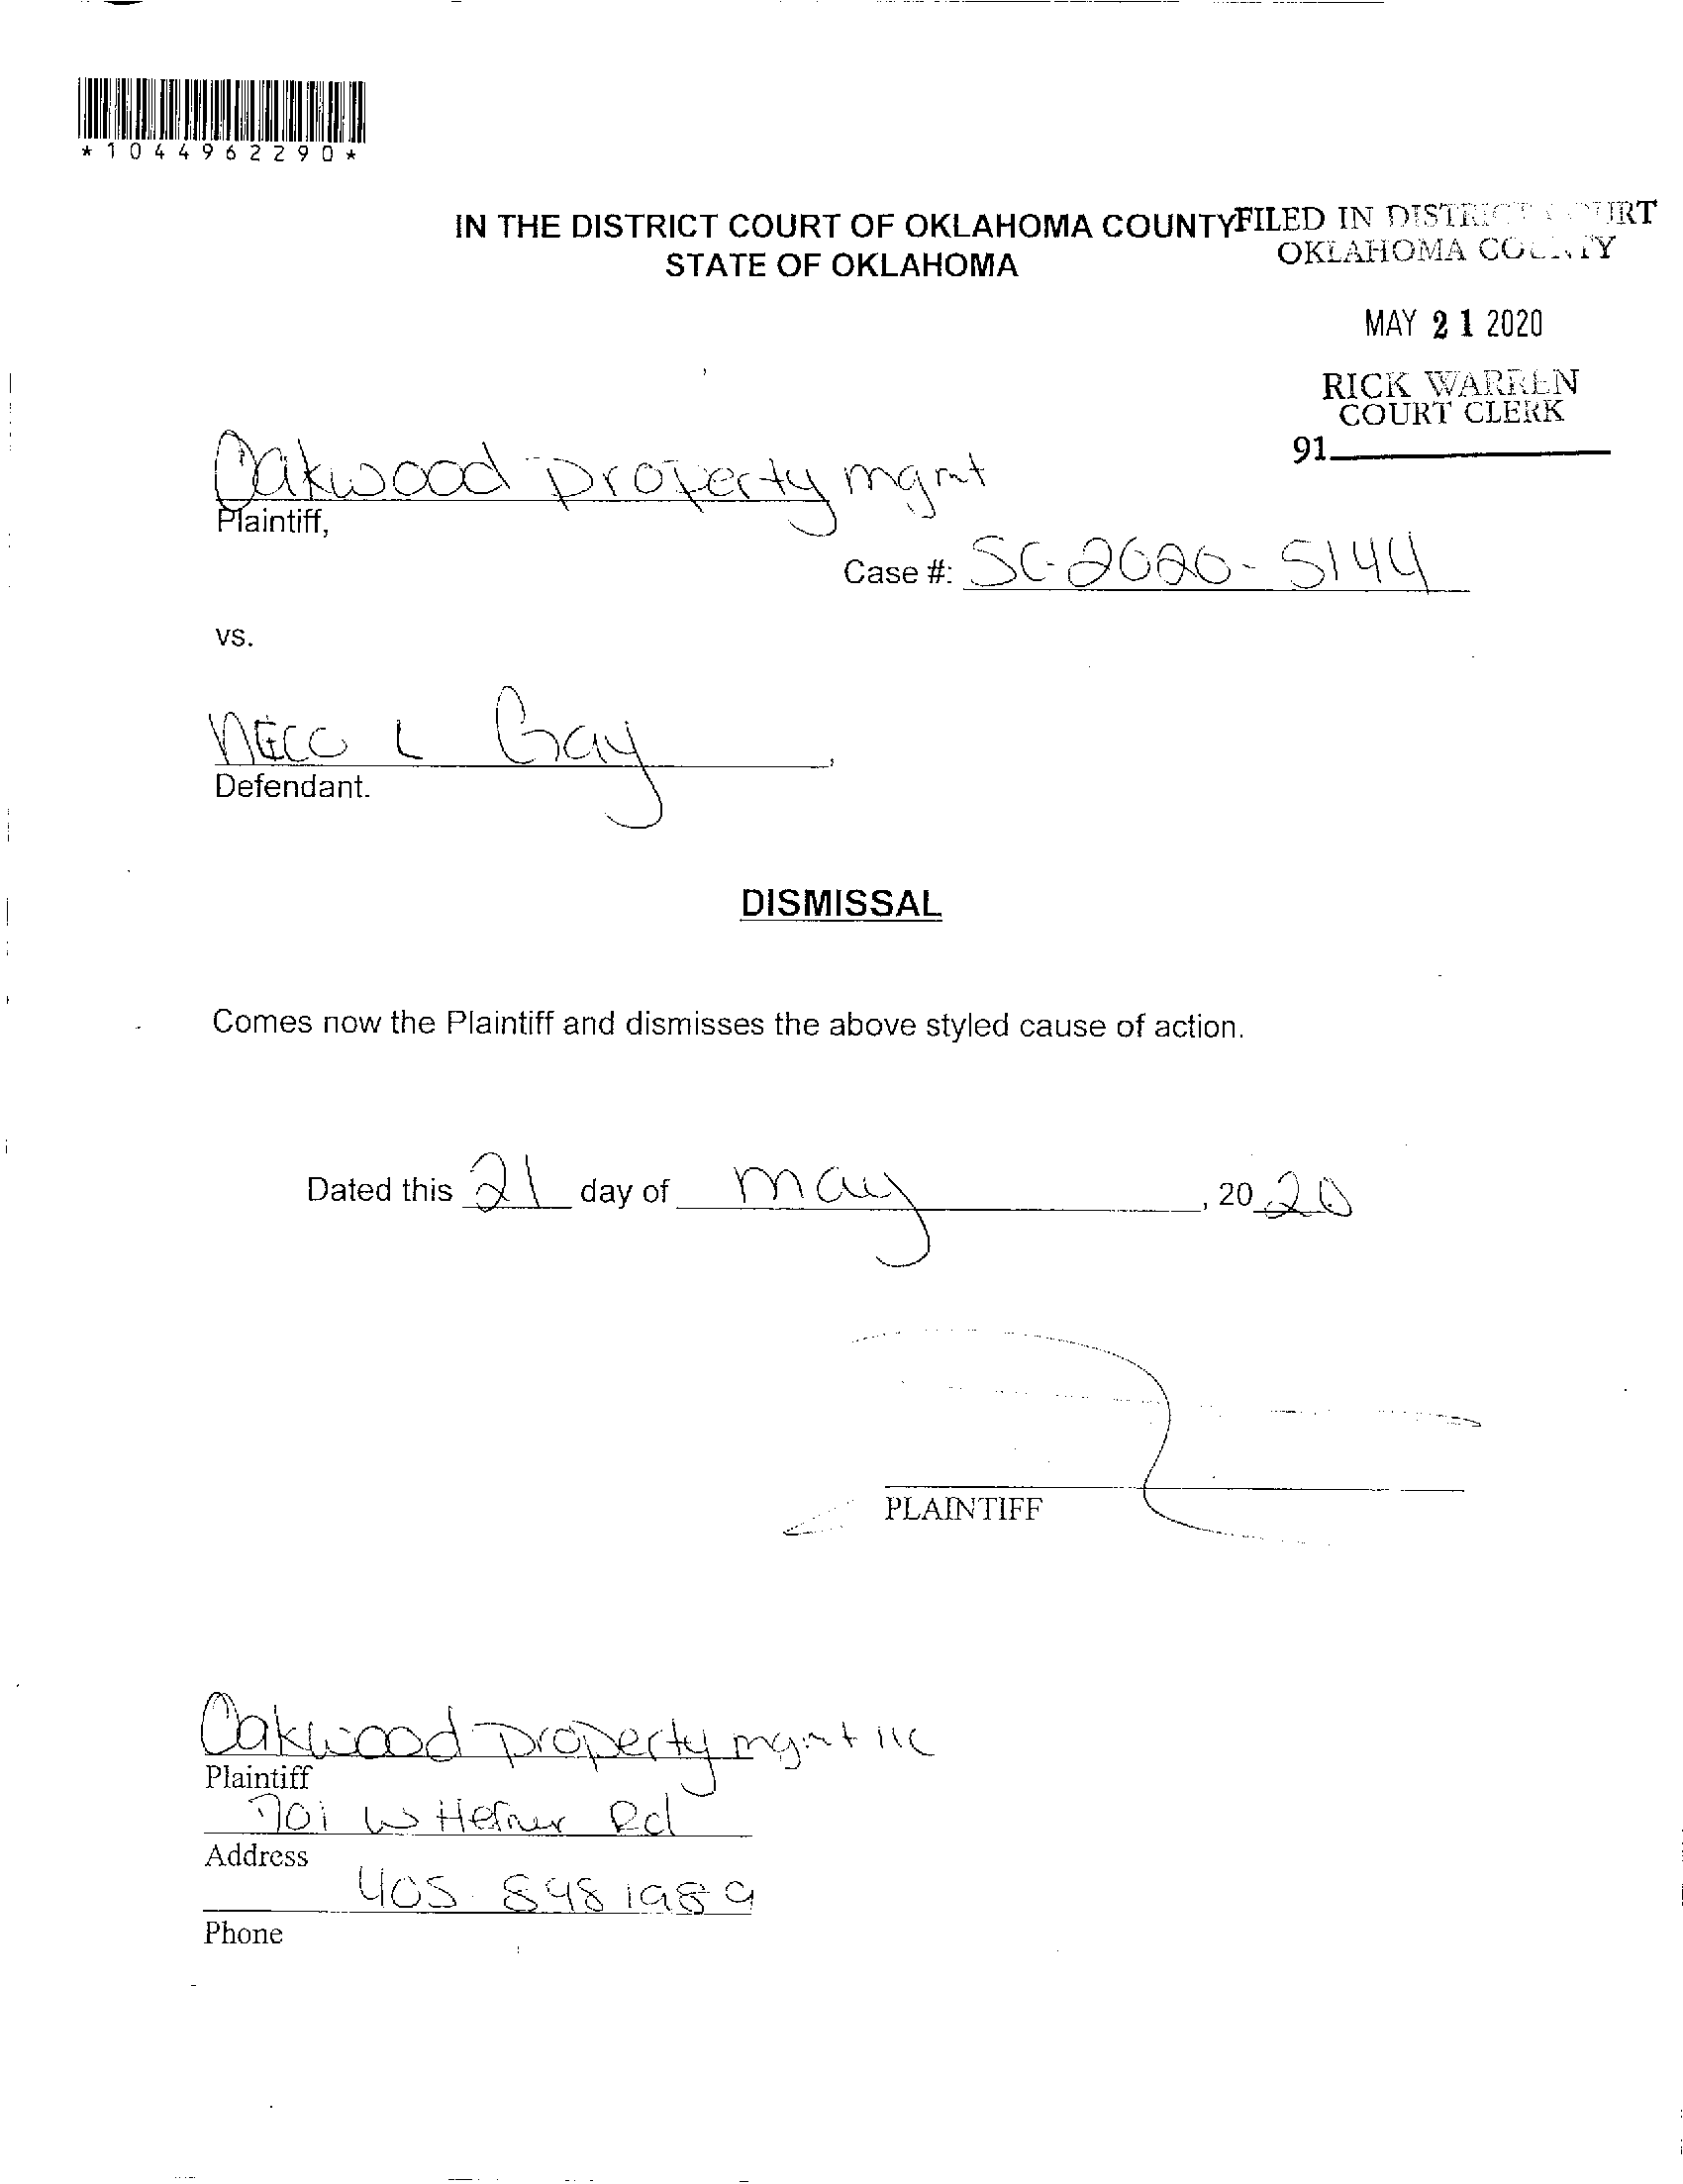 *1044962290*
IN THE DISTRICT COURT OF OKLAHOMA COUNTY
STATE OF OKLAHOMA
FILED IN DISTRICT COURT
OKLAHOMA COUNTY
MAY 21 2020
RICK WARREN
COURT CLERK
91
Oakwood property mgmt
Plaintiff,
Case #: SC-2020-5144
vs.
L Gray,
Defendant.
DISMISSAL
Comes now the Plaintiff and dismisses the above styled cause of action.
Dated this 21 day of may, 2020
PLAINTIFF
Oakwood property mgmt llc
Plaintiff
701 W Hefner Rd
Address
405 848 1989
Phone